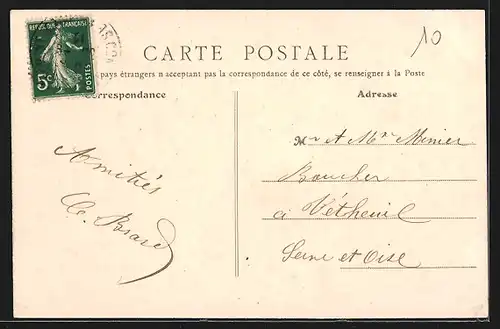 10
RÉPUBLIQUE FRANÇAISE
5c POSTES
CARTE POSTALE
pays étrangers n acceptant pas la correspondance de ce côté, se renseigner à la Poste
Correspondance
Adresse
Mr & Mme Minier
Boucher
à Vétheuil
Seine et Oise
Amitiés